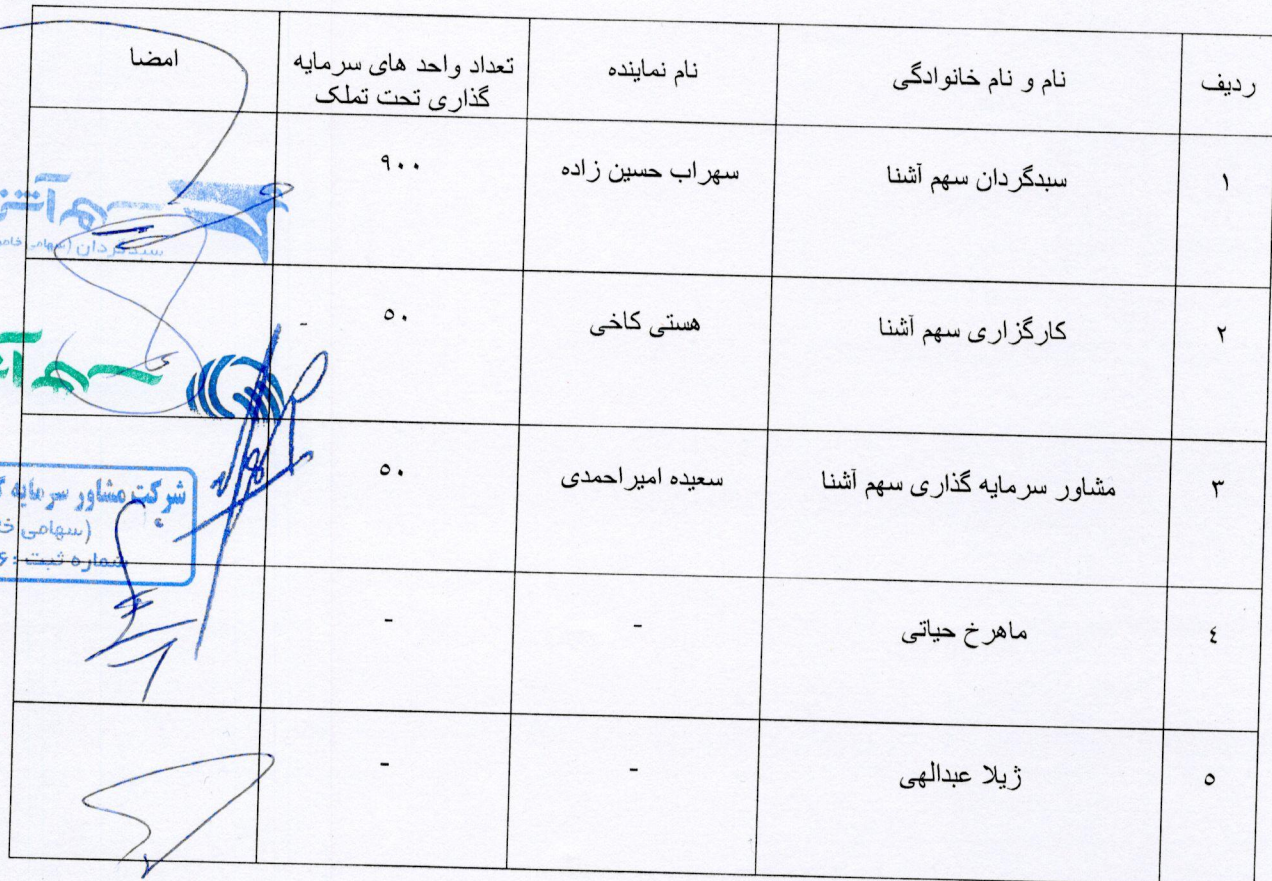 ردیف
نام و نام خانوادگی
نام نماینده
تعداد واحد های سرمایه
گذاری تحت تملک
امضا
۱
سبدگردان سهم آشنا
سهراب حسین زاده
۹۰۰
سبدگردان (سهامی
۲
کارگزاری سهم آشنا
هستی کاخی
۵۰
۳
مشاور سرمایه گذاری سهم آشنا
سعیده امیراحمدی
۵۰
شرکت مشاور سرمایه
(سهامی
شماره ثبت :
٤
ماهرخ حیاتی
-
-
۵
ژیلا عبدالهی
-
-